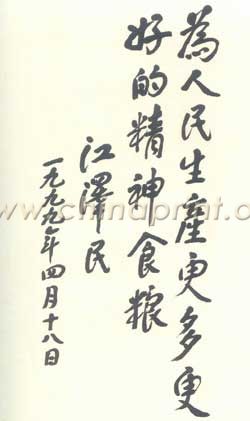 為人民生產更多更
好的精神食糧
江澤民
一九九九年四月十八日